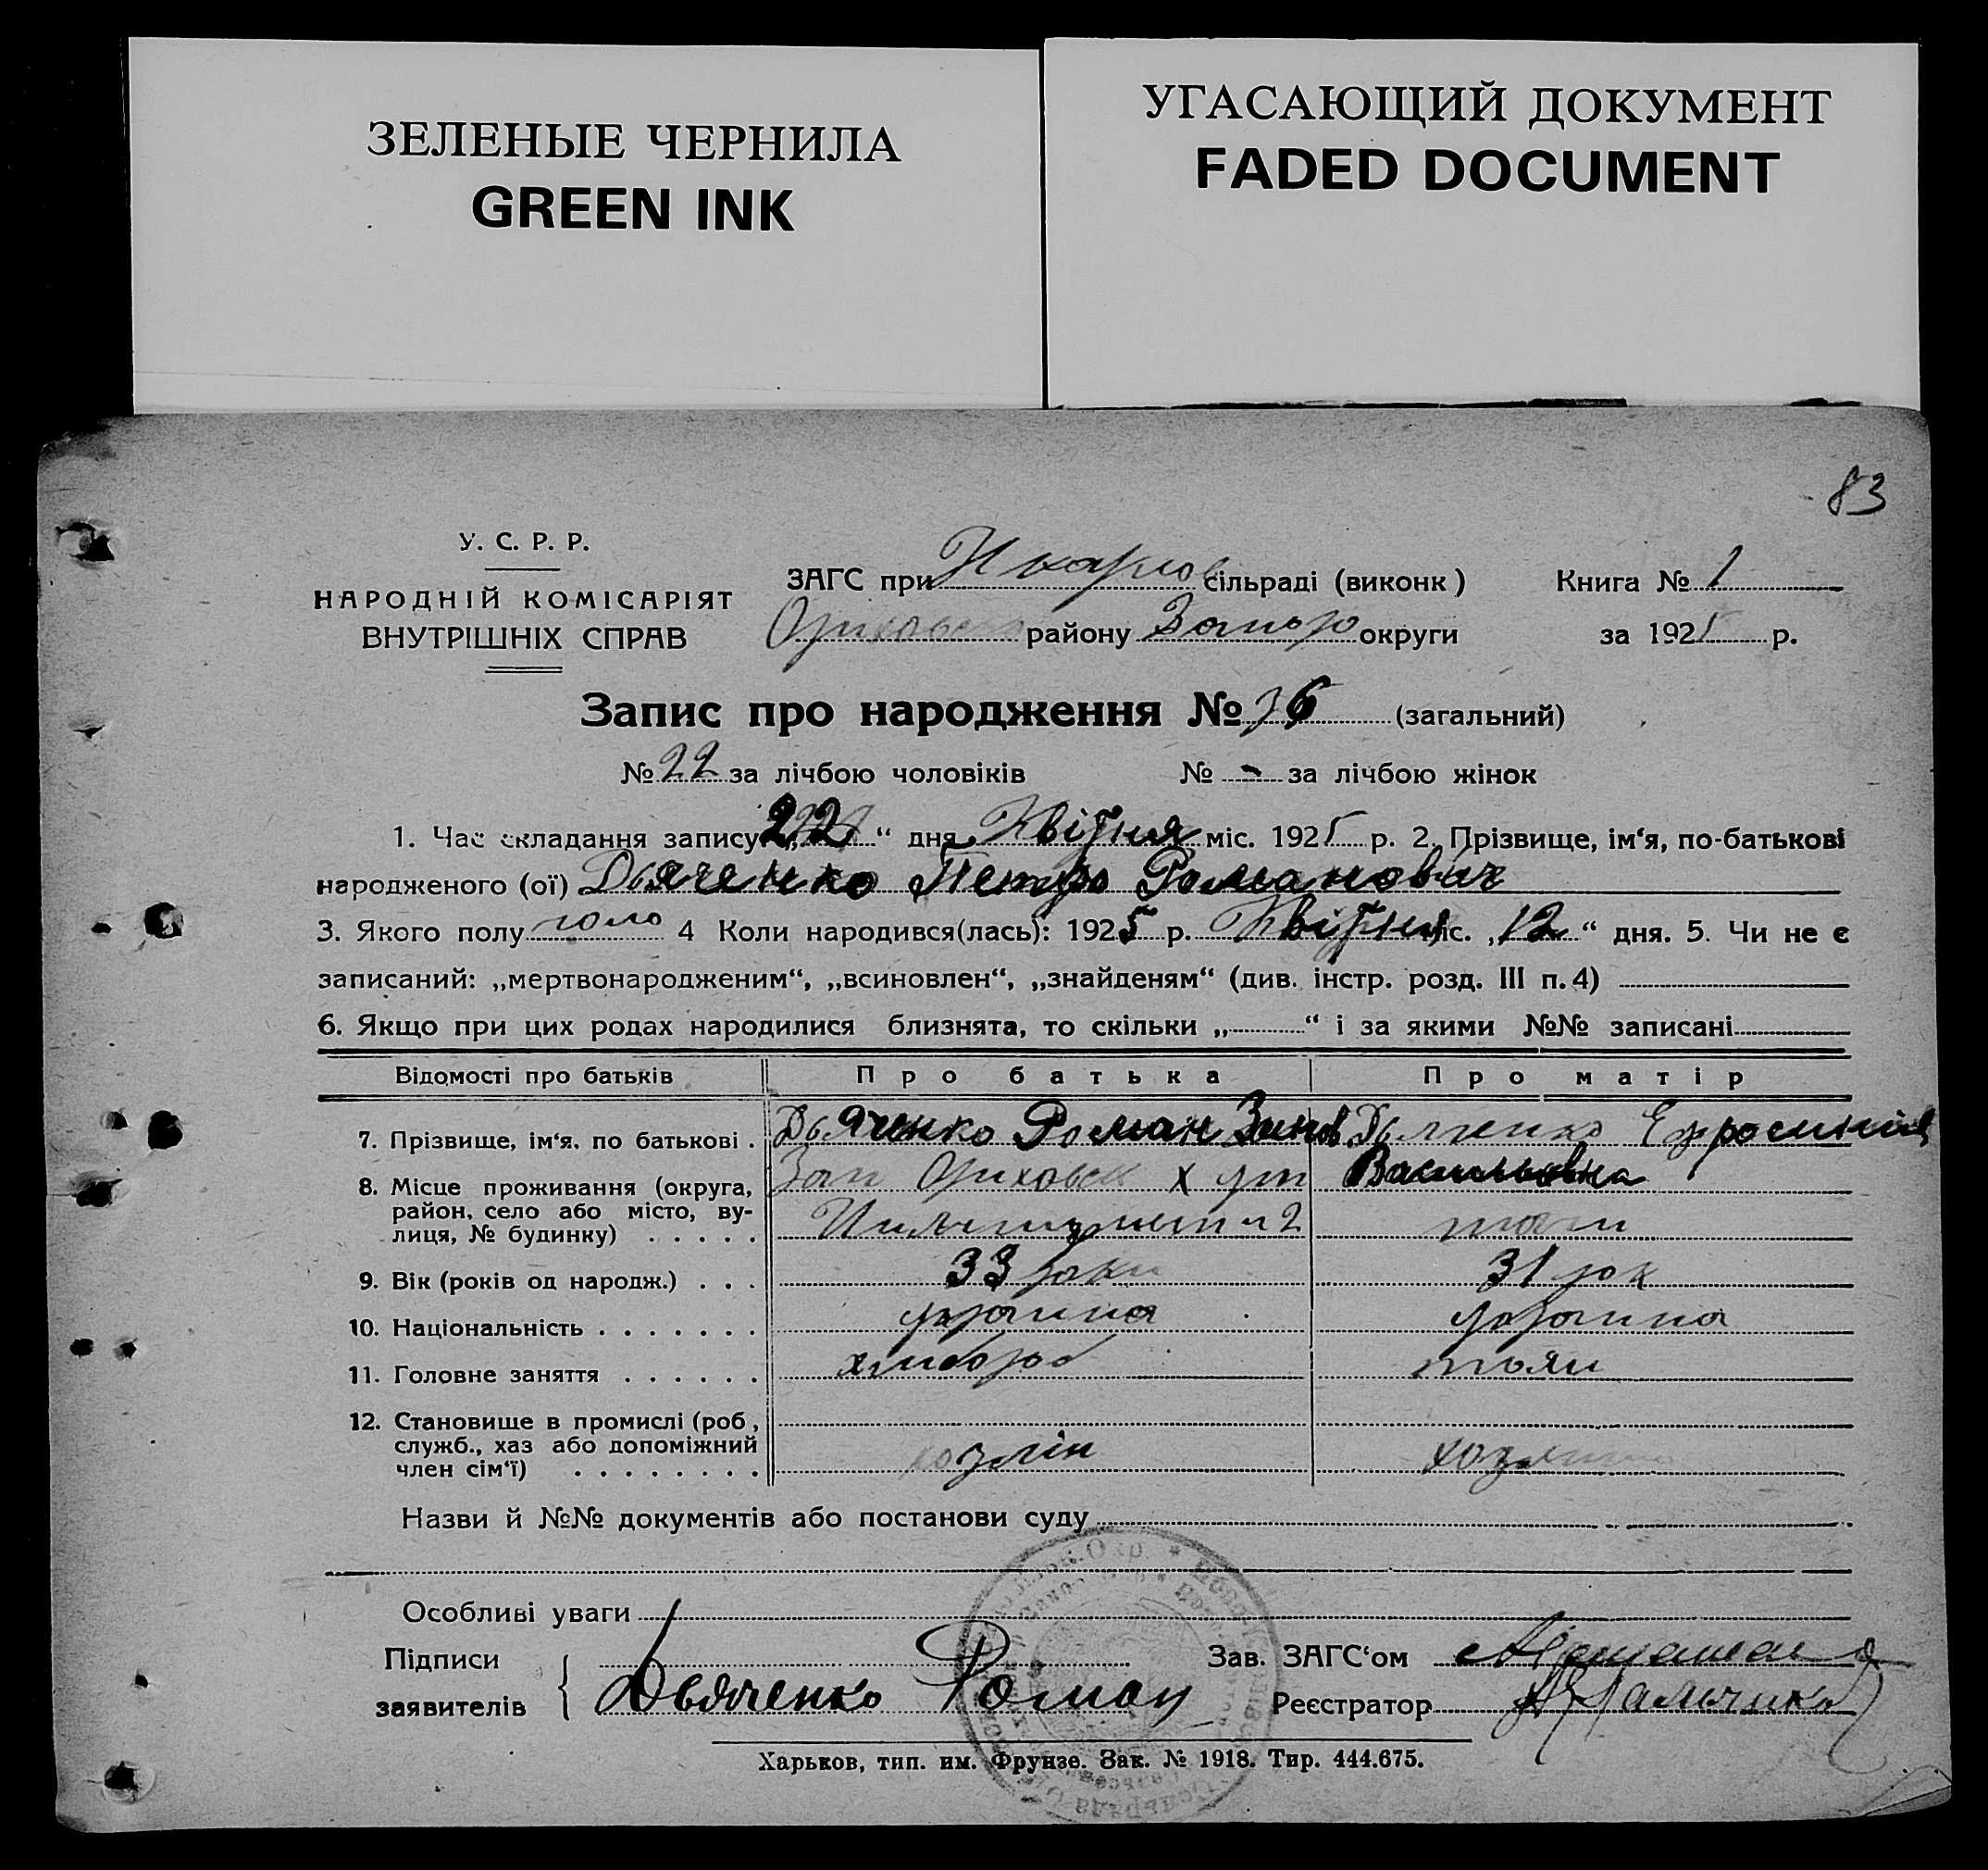 ЗЕЛЕНЫЕ ЧЕРНИЛА
GREEN INK
УГАСАЮЩИЙ ДОКУМЕНТ
FADED DOCUMENT
83
У. С. Р. Р.
НАРОДНІЙ КОМІСАРІЯТ
ВНУТРІШНІХ СПРАВ
ЗАГС при сільраді (виконк)
Оріховськ району Запор округи
Книга № 1
за 1925 р.
Запис про народження № 36 (загальний)
№ 22 за лічбою чоловіків № - за лічбою жінок
1. Час складання запису „22“ дня Квітня міс. 1925 р. 2. Прізвище, ім‘я, по-батькові
народженого (ої) Дьяченко Петро Романович
3. Якого полу чоло 4 Коли народився(лась): 1925 р. Квітня міс. „12“ дня. 5. Чи не є
записаний: „мертвонародженим“, „всиновлен“, „знайденям“ (див. інстр. розд. III п. 4)
6. Якщо при цих родах народилися близнята, то скільки „ “ і за якими №№ записані
Відомості про батьків Про батька Про матір
7. Прізвище, ім‘я, по батькові . Дьяченко Роман Зинов Дьяченко Ефросинія
Васильовна
8. Місце проживання (округа, Зап Оріховськ х
район, село або місто, ву-
лиця, № будинку) . . . . . 2
9. Вік (років од народж.) . . . 33 роки 31 рок
10. Національність . . . . . . . україна україна
11. Головне заняття . . . . . . хлибороб
12. Становище в промислі (роб,
служб., хаз або допоміжний
член сім‘ї) . . . . . . . . хозяін
Назви й №№ документів або постанови суду
Особливі уваги
Підписи
заявителів Дьяченко Роман
Зав. ЗАГС‘ом
Реєстратор
Харьков, тип. им. Фрунзе. Зак. № 1918. Тир. 444.675.